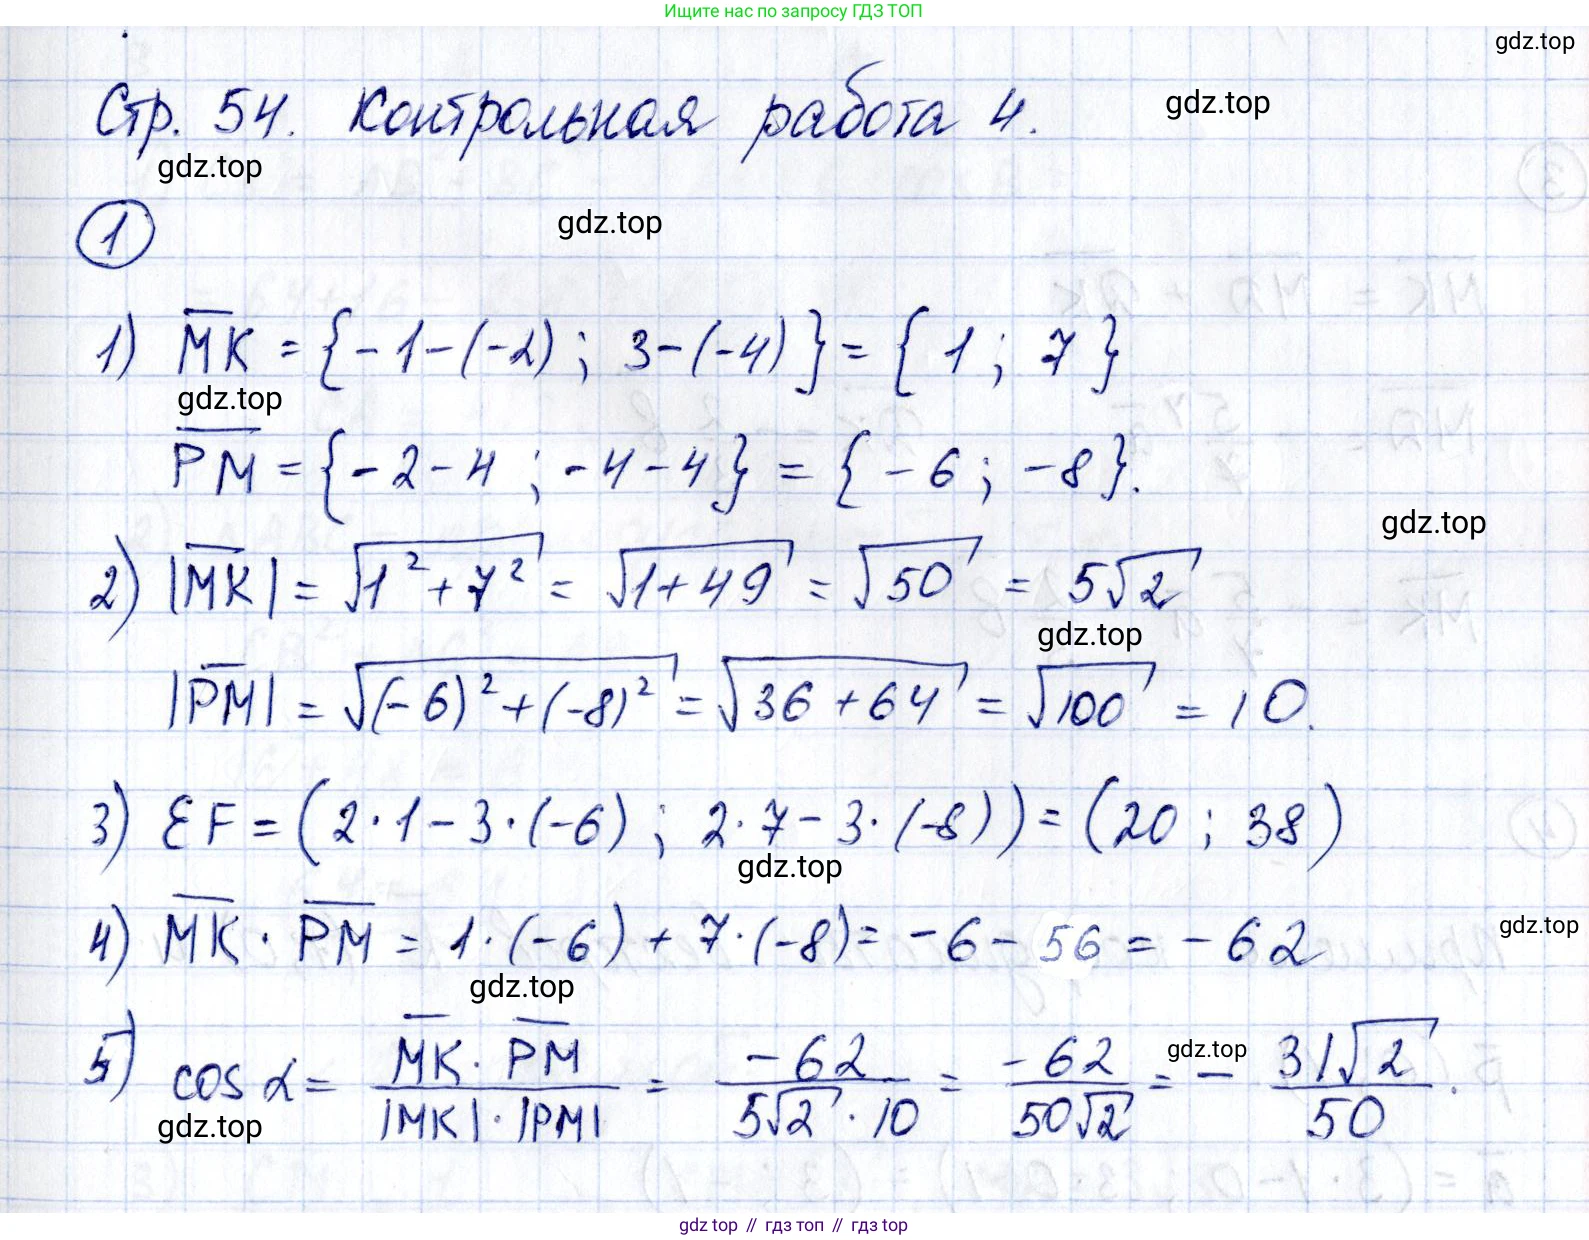 Ищите нас по запросу ГДЗ ТОП
gdz.top
Стр. 54. Контрольная работа 4.
gdz.top
gdz.top
1
gdz.top
1) MK = {-1-(-2); 3-(-4)} = {1; 7}
gdz.top
PM = {-2-4; -4-4} = {-6; -8}.
gdz.top
2) |MK| = √1²+7² = √1+49 = √50 = 5√2
gdz.top
|PM| = √(-6)²+(-8)² = √36+64 = √100 = 10.
3) EF = (2·1-3·(-6); 2·7-3·(-8)) = (20; 38)
gdz.top
4) MK · PM = 1·(-6) + 7·(-8) = -6-56 = -62
gdz.top
gdz.top
5) cos α = MK · PM / |MK| · |PM| = -62 / 5√2 · 10 = -62 / 50√2 = - 31√2 / 50.
gdz.top
gdz.top
gdz top // гдз топ // gdz top